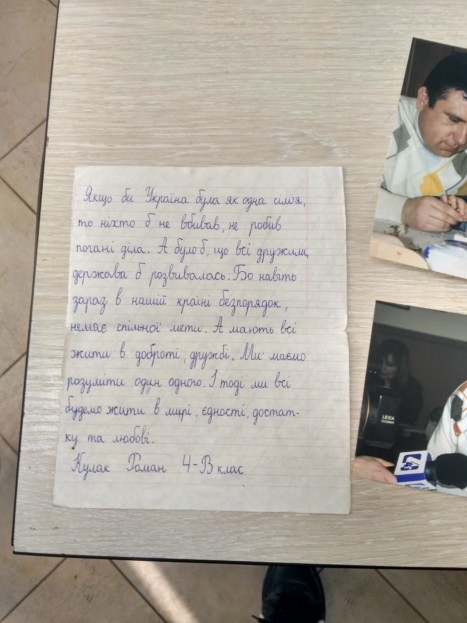 Якщо би Україна була як одна сім'я,
то ніхто б не вбивав, не робив
погані діла. А було б, що всі дружили,
держава б розвивалась. Бо навіть
зараз в нашій країні безпорядок,
немає спільної мети. А мають всі
жити в доброті, дружбі. Ми маємо
розуміти один одного. І тоді ми всі
будемо жити в мирі, єдності, достат-
ку та любові.
Кулак Роман 4-В клас
LEICA